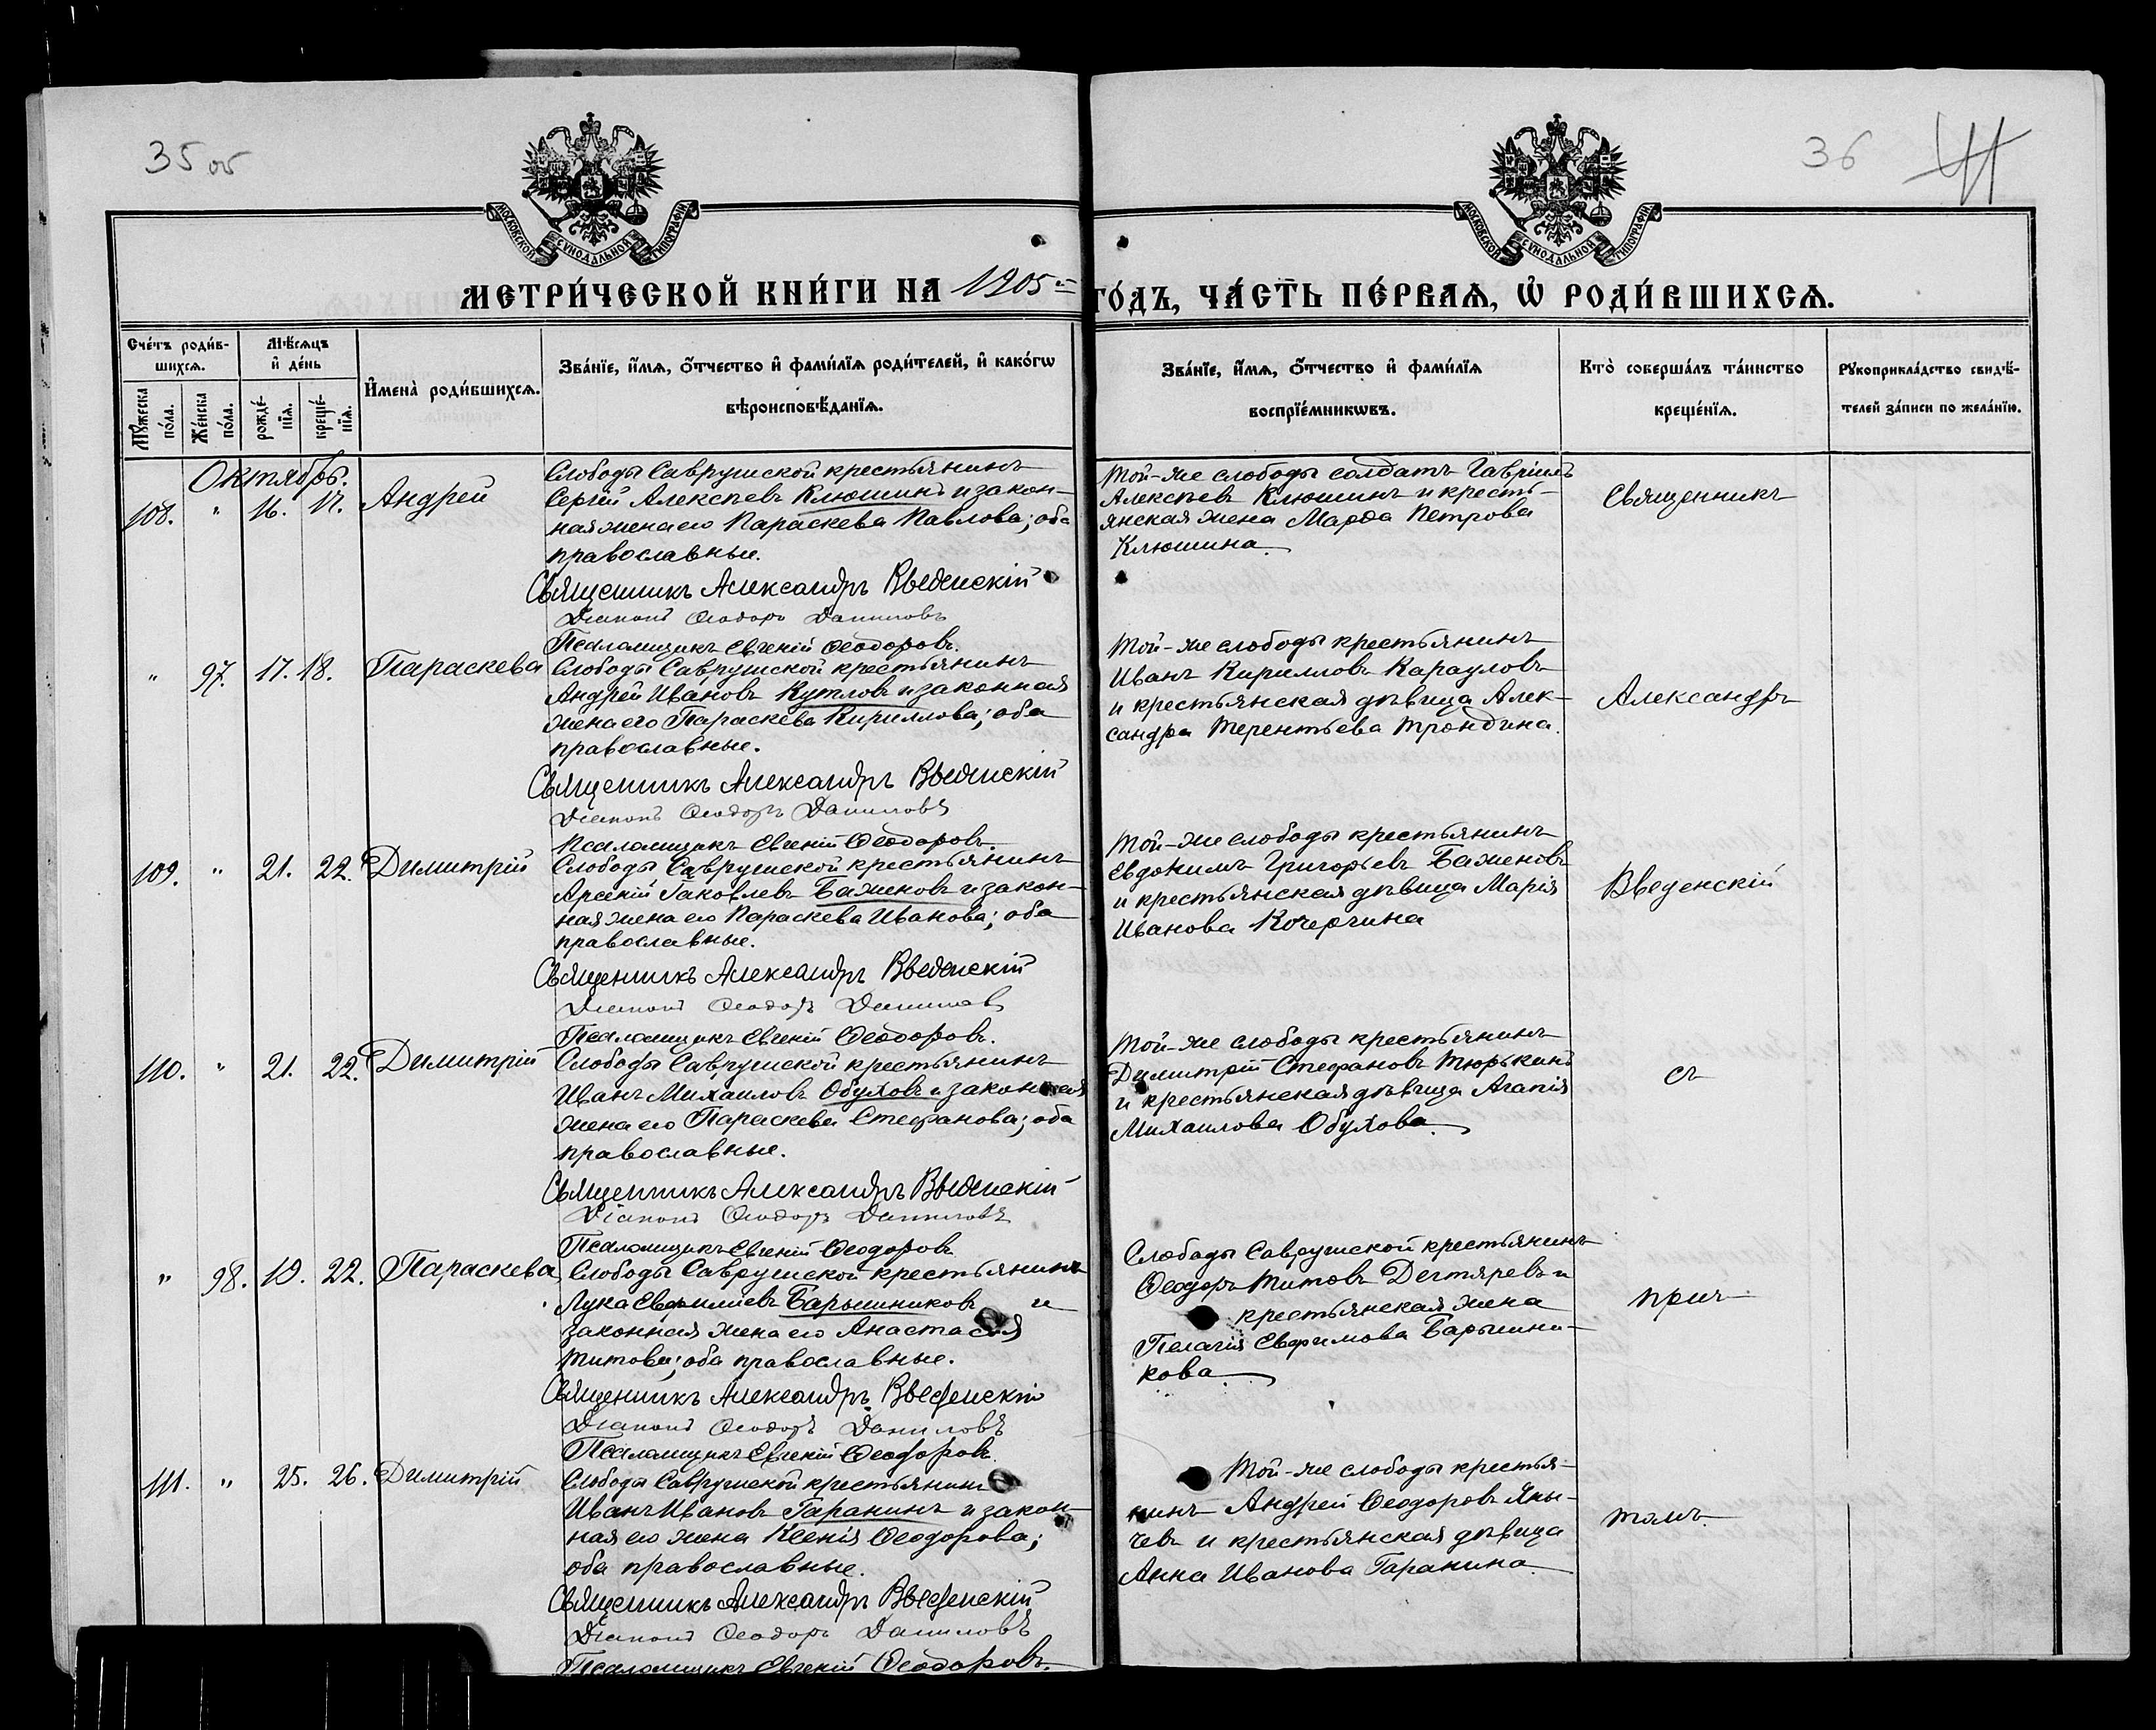 35 об
36
МОСКОВСКОЙ СѴНОДАЛЬНОЙ ТИПОГРАФІИ
МОСКОВСКОЙ СѴНОДАЛЬНОЙ ТИПОГРАФІИ
МЕТРИ́ЧЕСКОЙ КНИ́ГИ НА 1905-й ГО́ДЪ, ЧА́СТЬ ПЕ́РВАѦ, Ѡ҆ РОДИ́ВШИХСѦ.
Сче́тъ роди́в-
шихсѧ.
Мꙋ́жеска по́ла.
Же́нска по́ла.
Мѣ́сѧцъ и҆ де́нь
рожде́-нїѧ.
креще́-нїѧ.
И҆мена̀ роди́вшихсѧ.
Зва́нїе, и҆́мѧ, ѻ҆́тчество и҆ фами́лїѧ роди́телей, и҆ како́гѡ
вѣроисповѣ́данїѧ.
Зва́нїе, и҆́мѧ, ѻ҆́тчество и҆ фами́лїѧ
воспрїе́мникѡвъ.
Кто̀ соверша́лъ та́инство
креще́нїѧ.
Рꙋкоприкла́дство свидѣ́-
телей за́писи по жела́нїю.
Октябрь.
108. " 16. 17. Андрей
Слободы Саврушской крестьянинъ
Сергій Алексѣевъ Клюшинъ и закон-
ная жена его Параскева Павлова; оба
православные.
Священникъ Александръ Введенскій
Діаконъ Ѳеодоръ Даниловъ
Псаломщикъ Евгеній Ѳеодоровъ.
Той-же слободы солдатъ Гавріилъ
Алексѣевъ Клюшинъ и кресть-
янская жена Марѳа Петрова
Клюшина.
Священникъ
" 97. 17. 18. Параскева
Слободы Саврушской крестьянинъ
Андрей Ивановъ Кутловъ и законная
жена его Параскева Кириллова; оба
православные.
Священникъ Александръ Введенскій
Діаконъ Ѳеодоръ Даниловъ
Псаломщикъ Евгеній Ѳеодоровъ.
Той-же слободы крестьянинъ
Иванъ Кирилловъ Карауловъ
и крестьянская дѣвица Алек-
сандра Терентьева Трондина.
Александръ
109. " 21. 22. Димитрій
Слободы Саврушской крестьянинъ
Арсеній Іаковлевъ Баженовъ и закон-
ная жена его Параскева Иванова; оба
православные.
Священникъ Александръ Введенскій
Діаконъ Ѳеодоръ Даниловъ
Псаломщикъ Евгеній Ѳеодоровъ.
Той-же слободы крестьянинъ
Евдокимъ Григорьевъ Баженовъ
и крестьянская дѣвица Марія
Иванова Кочергина
Введенскій
110. " 21. 22. Димитрій
Слободы Саврушской крестьянинъ
Иванъ Михаиловъ Обуховъ и законная
жена его Параскева Стефанова; оба
православные.
Священникъ Александръ Введенскій
Діаконъ Ѳеодоръ Даниловъ
Псаломщикъ Евгеній Ѳеодоровъ
Той-же слободы крестьянинъ
Димитрій Стефановъ Тюрькинъ
и крестьянская дѣвица Агапія
Михаилова Обухова.
съ
" 98. 19. 22. Параскева
Слободы Саврушской крестьянинъ
Лука Евфиміевъ Барышниковъ и
законная жена его Анастасія
Титова; оба православные.
Священникъ Александръ Введенскій
Діаконъ Ѳеодоръ Даниловъ
Псаломщикъ Евгеній Ѳеодоровъ.
Слободы Саврушской крестьянинъ
Ѳеодоръ Титовъ Дегтяревъ и
крестьянская жена
Пелагія Евфимова Барышни-
кова.
прич-
111. " 25. 26. Димитрій
Слободы Саврушской крестьянинъ
Иванъ Ивановъ Гаранинъ и закон-
ная его жена Ксенія Ѳеодорова;
оба православные.
Священникъ Александръ Введенскій
Діаконъ Ѳеодоръ Даниловъ
Псаломщикъ Евгеній Ѳеодоровъ.
Той-же слободы крестья-
нинъ Андрей Ѳеодоровъ Яны-
чевъ и крестьянская дѣвица
Анна Иванова Гаранина.
томъ.